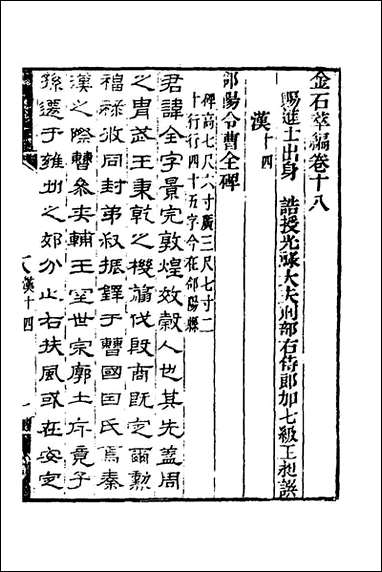 金石萃編卷十八
賜進士出身 誥授光祿大夫刑部右侍郎加七級王昶譔
漢十四
郃陽令曹全碑
碑高七尺六寸廣三尺七寸二
十行行四十五字今在郃陽縣
君諱全字景完敦煌效穀人也其先蓋周
之胄武王秉乾之機翦伐殷商既定爾勳
福祿攸同封弟叔振鐸于曹國因氏焉秦
漢之際曹參夾輔王室世宗廓土斥竟子
孫遷于雍州之郊分止右扶風或在安定
漢十四